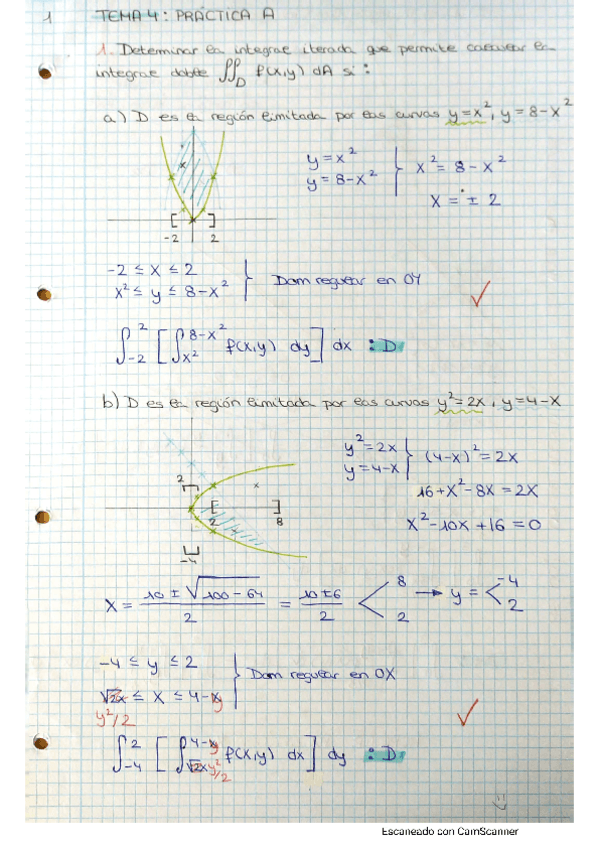 1 TEMA 4: PRÁCTICA A
1. Determinar la integral iterada que permite calcular la
integral doble ∬_D f(x,y) dA si:
a) D es la región limitada por las curvas y=x², y=8-x²
y=x²
y=8-x² } x²=8-x²
x=±2
-2 2
-2 ≤ x ≤ 2
x² ≤ y ≤ 8-x² } Dom regular en OY ✓
∫_{-2}^{2} [∫_{x²}^{8-x²} f(x,y) dy] dx : D
b) D es la región limitada por las curvas y²=2x, y=4-x
y²=2x
y=4-x } (4-x)²=2x
16+x²-8x=2x
x²-10x+16=0
2
2 8
-4
x = (10 ± √(100-64))/2 = (10±6)/2 < 8 2 → y = < -4 2
-4 ≤ y ≤ 2
√2x ≤ x ≤ 4-y } Dom regular en OX
y²/2
∫_{-4}^{2} [∫_{√2x y²/2}^{4-y} f(x,y) dx] dy : D ✓
Escaneado con CamScanner